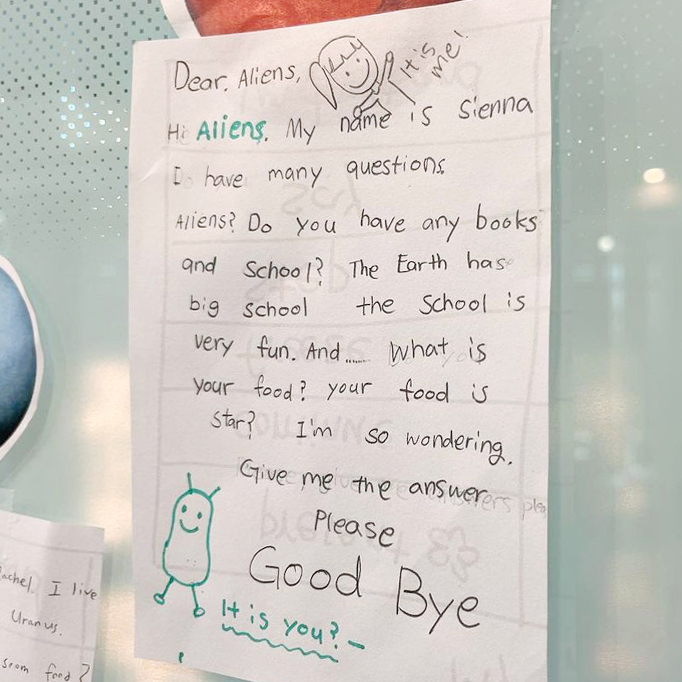 Dear. Aliens,
It is
me!
Hi Aliens. My name is Sienna
I have many questions.
Aliens? Do you have any books
and School? The Earth has
big school the School is
very fun. And...... What is
your food? your food is
star? I'm so wondering.
Give me the answer
Please
Good Bye
It is you? -
I live
Uranus.
food?